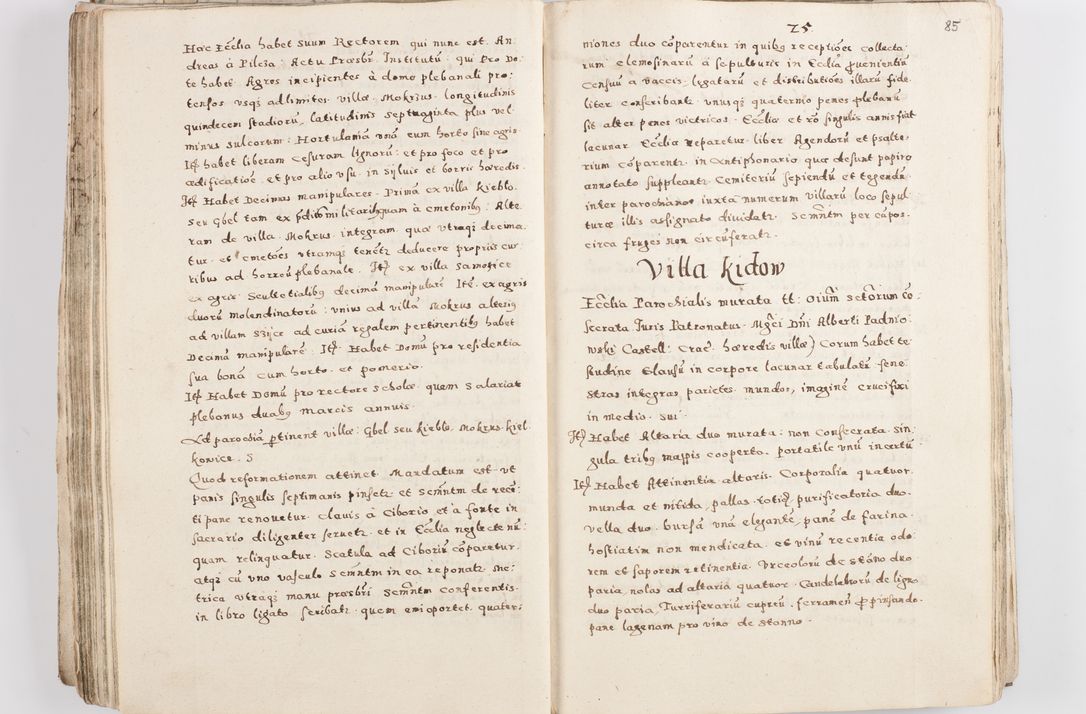 Haec Eccłia habet suum Rectorem qui nunc est. An,
dreas à Pilcza: Actu Praesbr. Institutū: qui pro Do,
te habet Agros incipientes à domo plebanali pro,
tensos vsq; ad limites villae Mokrzus, longitudinis
quindecem stadiorū, latitudinis septuaginta plus vel
minus sulcorum: Hortulaniā vnā cum horto sine agris.
Itē habet liberam Cesuram lignorū: et pro foco et pro
aedificatioē et pro alio vsu in syluis et borris haeredis.
Itē Habet Decimas manipulares. Primā ex villa Kieblo,
seu Gbel tam ex pditō militaribus quam à cmetonibq: Alte,
ram de villa Mokrus integram quae vtraq; decima,
tur. et cmetoēs vtramq; tenetr deducere proprijs cur,
ribus ad horreū plebanale. Itē ex villa Samosice
ex agris Scultetialibq decimā manipularē Itē. ex agris
duorū molendinatorū: vnius ad villā Mokrus alterius
ad villam Szijce ad curiā regalem pertinentibq habet
Decimā manipularē. Itē Habet Domū pro residentia
sua bonā cum horto et pomerio.
Itē Habet Domū pro rectore scholae quem salariat
plebanus duabq marcis annuis.
Ad parochiā ptinent villae: Gbel seu kieblo, Mokrus, kiel,
kowice. S
Quod reformationem attinet Mandatum est vt
panis singulis septimanis pinsetr et Scmntm de recē,
ti pane renouetur. Clauis à Ciborio et à fonte in
sacrario diligenter seruetr et in Eccłia neglecte nū,
quam relinquatur. Scatula ad Ciboriū cōparetur
atq; cū vno vasculo Scmntm in ea reponatr Me,
trica vtraq; manu praesbri Scmntm conferentis
in libro ligato scribatr quem emi oportet. quater,

25 85
niones duo cōparentur in quibq receptiōes collecta,
rum elemosinarū à sepulturis in Ecclia puenientiū
Censuū à vaccis, legatarū et distributiōes illarū fide,
liter conscribantr vnusq; quaternio penes plebanū
sit alter penes vitricos. Eccłia et rō singulis annis fiat
lacunar Eccłia reparetur liber Agendorū et psalte,
rium cōparentr in Antiphonario quae desunt papiro
annotato suppleantr Cemiteriū sepiendū et tegendū
inter parochianos iuxta numerum villarū loco sepul,
turae illis assignato diuidatr Scmntm per cāpos
circa fruges non circūferatr.
Villa kidow
Eccłia Parochialis murata tt: Oiūm Sctōrum cō,
secrata Iuris Patronatus Mgci Dni Alberti Padnio,
wski Castell: Crac. haeredis villae) Corum habet te,
studine Clausū in corpore lacunar tabulatū fene,
stras integras, parietes mundos, imaginē crucifixi
in medio sui
Itē Habet Altaria duo murata: non consecrata. Sin,
gula tribq mappis cooperto, portatile vnū incertū
Itē Habet Attinentia altaris. Corporalia quatuor,
munda et nitida, pallas totiq, purificatoria duo,
vella duo bursā vnā elegantē, panē de farina
hostiatim non mendicata et vinū recentia odo,
rem et saporem retinentia. Vrceolorū de stāno duo
paria, nolas ad altaria quatuor. Candelabrorū de ligno
duo paria, Turriferariū cupreū. Ferramen p pinsando
pane lagenam pro vino de stanno.